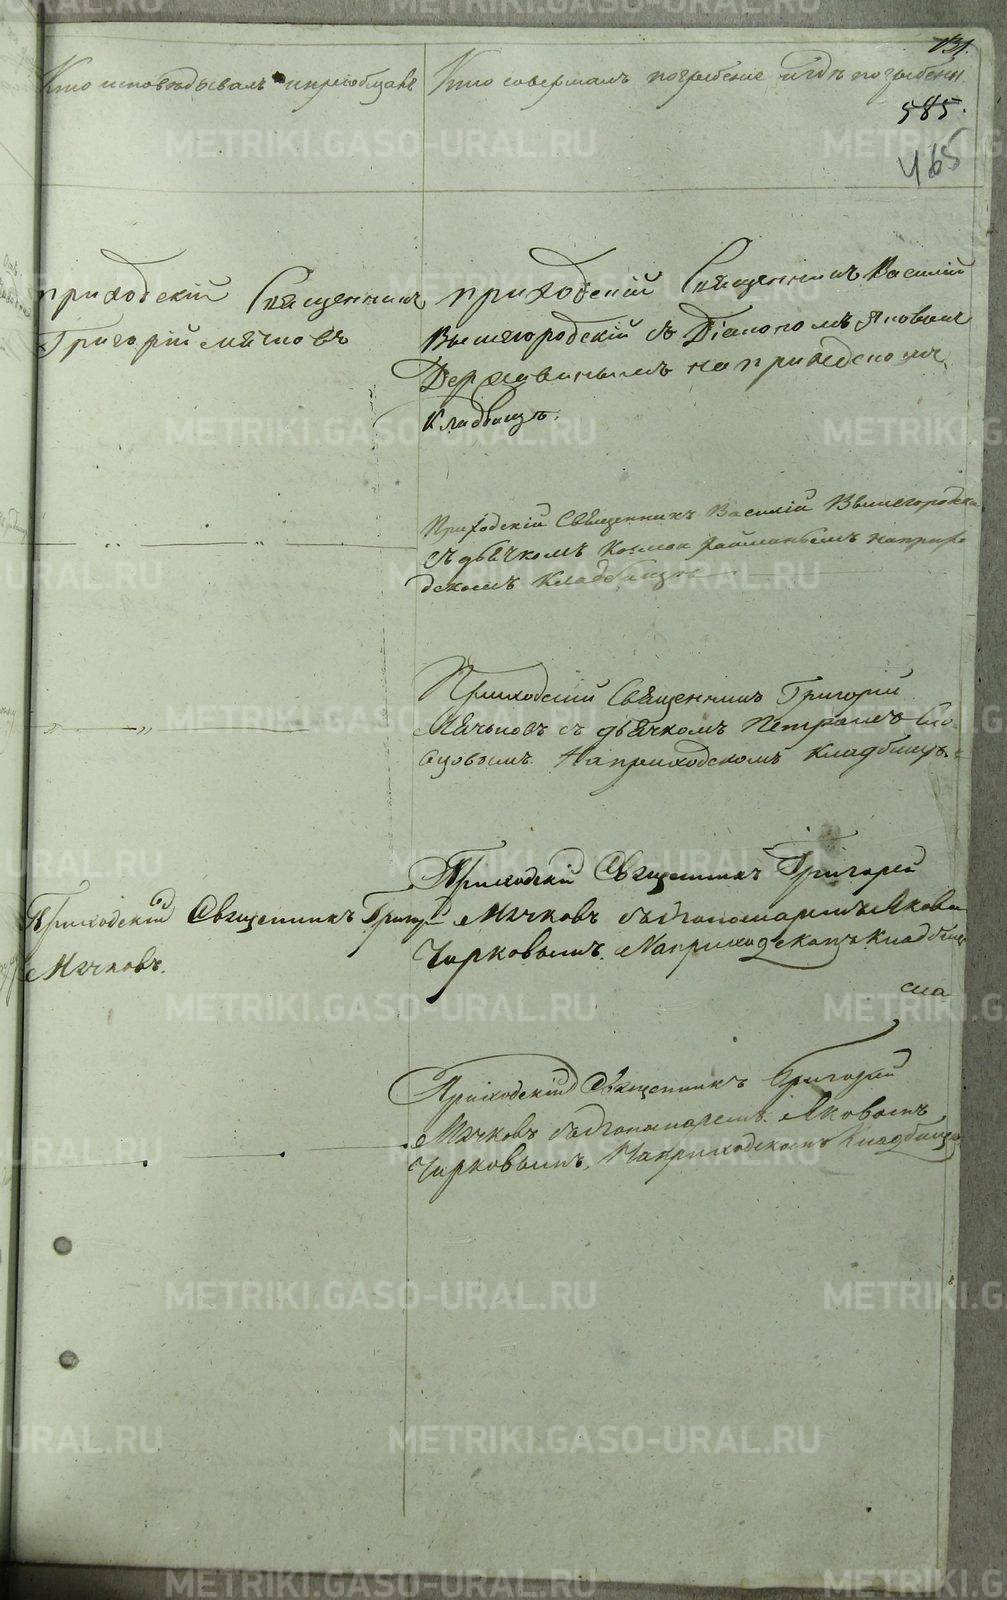 131.
Кто исповѣдывалъ и пріобщалъ
Кто совершалъ погребеніе и гдѣ погребены
585.
465
приходскій Священникъ
Григорій Мячковъ
приходскій Священникъ Василій
Вышегородскій съ Діакономъ Яковомъ
Державинымъ на приходскомъ
Кладбищѣ.
Приходскій Священникъ Василій Вышегородскій
съ дьячкомъ Козмою на прихо
дскомъ Кладбищѣ
Приходскій Священникъ Григорій
Мячковъ съ дьячкомъ Петромъ
На приходскомъ кладбищѣ
Приходскій Священникъ Григорій
Мячковъ.
Приходскій Священникъ Григорей
Мячковъ съ пономаремъ Яковомъ
Чирковымъ. На приходскомъ кладбищѣ
Приходскій Священникъ Григорій
Мячковъ съ пономаремъ Яковомъ
Чирковымъ. На приходскомъ Кладбищѣ
METRIKI.GASO-URAL.RU